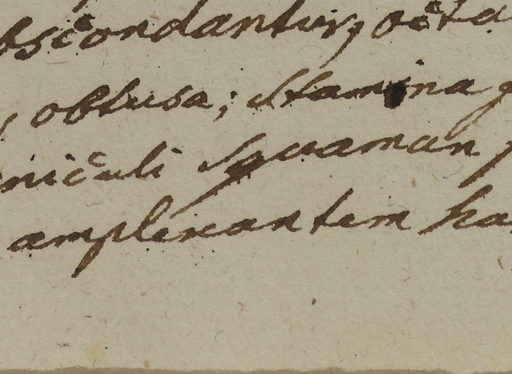 bscondantur, octa
, obtusa; Stamina
niculi Squamam
amplexantem ha